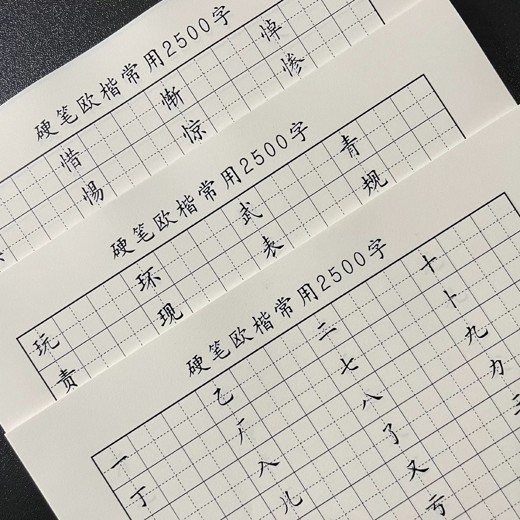 硬笔欧楷常用2500字
惜 惭 悼
惕 惊 惨
硬笔欧楷常用2500字
玩 环 武 青
责 现 表 规
硬笔欧楷常用2500字
一 乙 二 十
丁 厂 七 卜
八 九
入 了 力
儿 又
亏